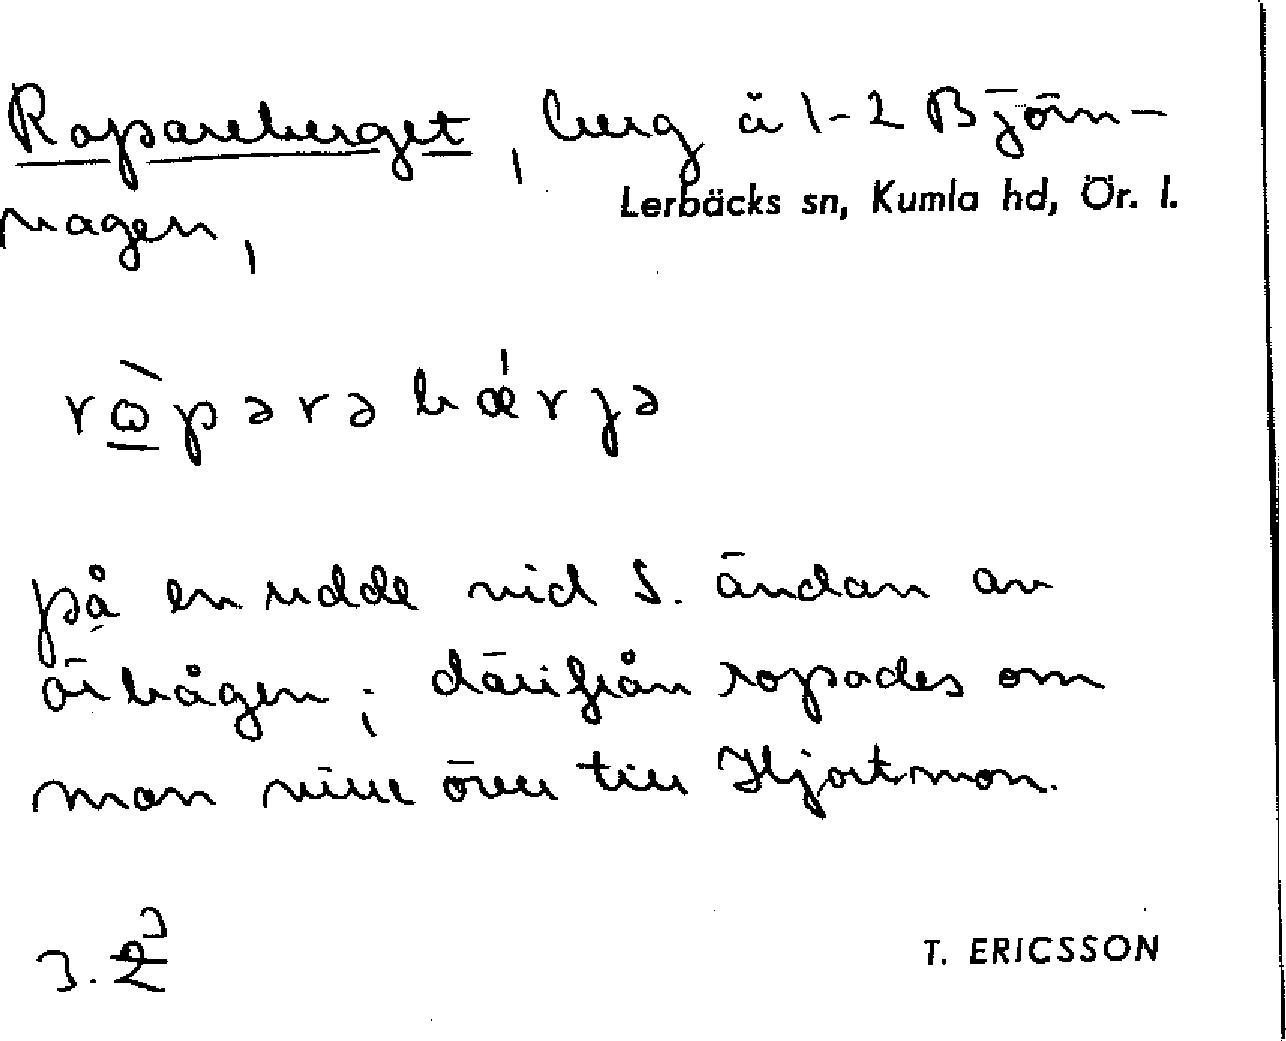 Ropareberget, berg ä 1-2 Björn-
Lerbäcks sn, Kumla hd, Ör. l.
vagen,
rὼ̲pərəbǽrjə
på en udde vid S. ändan av
ärhågen; därifrån ropades om
man ville över till Hjortmon.
3. 3
T. ERICSSON